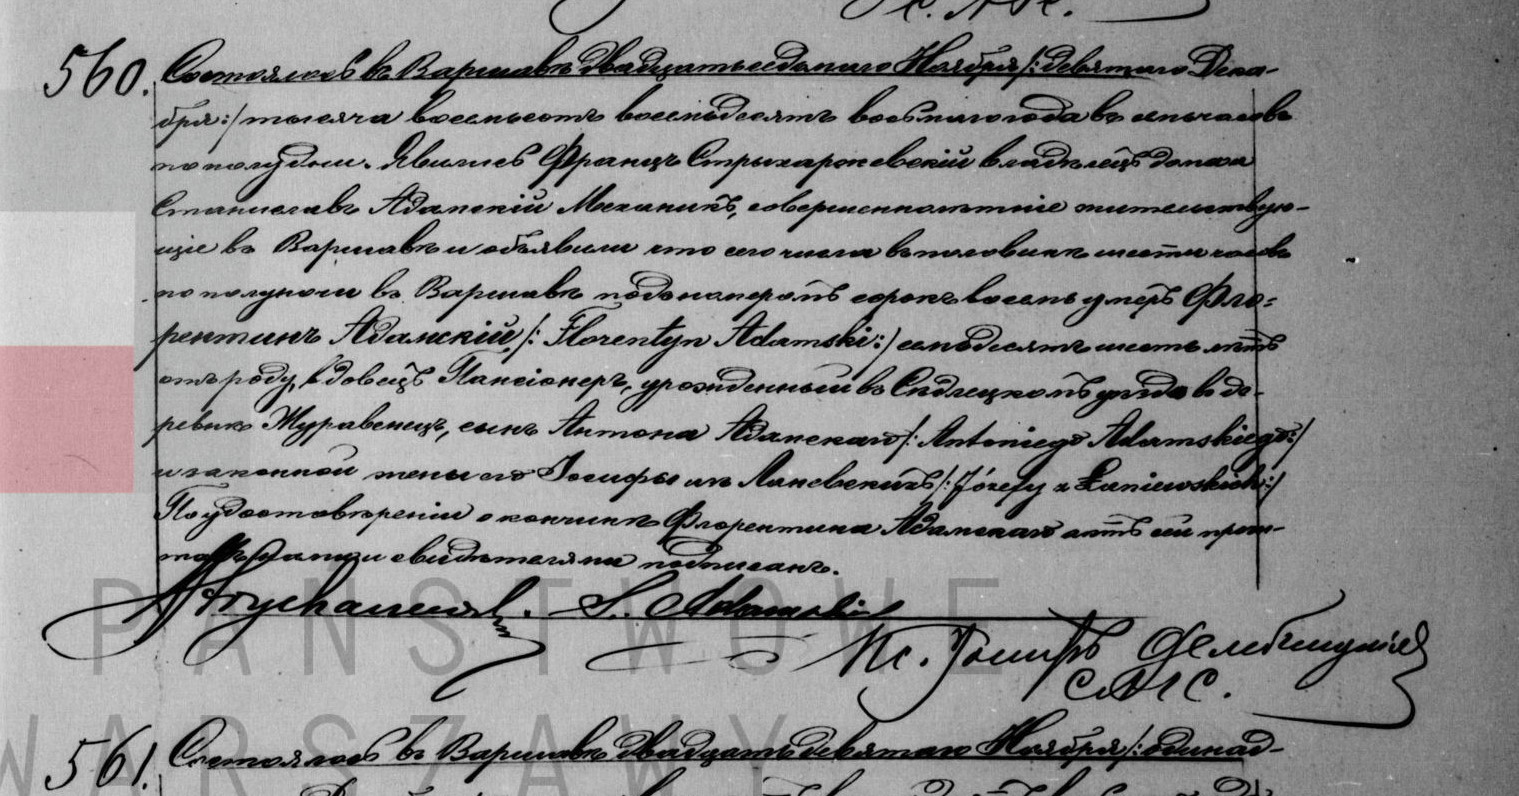 С. А. М. С.
560. Состоялось въ Варшавѣ двадцать седьмаго Ноября /: девятаго Дека-
бря :/ тысяча восемьсотъ восемьдесятъ восьмаго года въ семь часовъ
по полудни. Явились Францъ Стрыхаржевскій владѣлецъ дома и
Станиславъ Адамскій Механикъ, совершеннолѣтніе жительствую-
щіе въ Варшавѣ и объявили что сего числа въ половинѣ шести часовъ
по полуночи въ Варшавѣ подъ номеромъ сорокъ восемь умеръ Фло-
рентинъ Адамскій /: Florentyn Adamski :/ семьдесятъ шесть лѣтъ
отъ роду, вдовецъ Пансіонеръ, урожденный въ Сѣдлецкомъ уѣздѣ въ де-
ревнѣ Журавенецъ, сынъ Антона Адамскаго /: Antoniego Adamskiego :/
и законной жены его Іосифы изъ Ланевскихъ /: Józefy z Łaniewskich :/
По удостовѣреніи о кончинѣ Флорентина Адамскаго актъ сей прочи-
танъ нами и свидѣтелями подписанъ.
S. Adamski
Кс.
С. А. М. С.
PAŃSTWOWE
561. Состоялось въ Варшавѣ двадцать девятаго Ноября /: одинад-
WARSZAWY